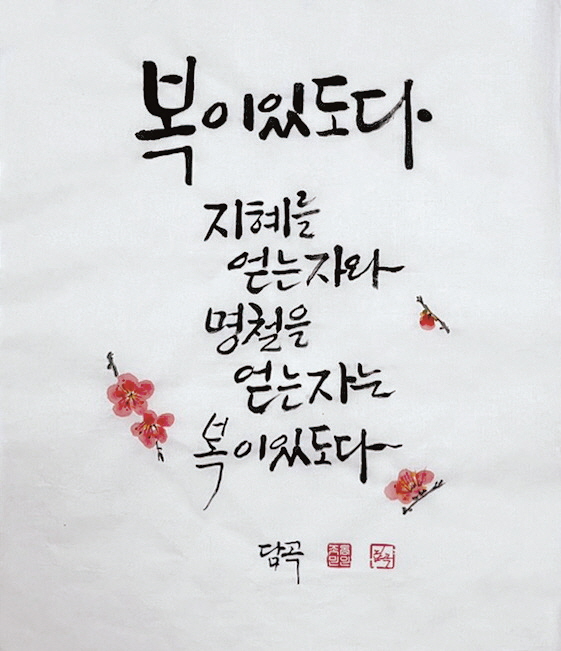 복이있도다.
지혜를
얻는자와
명철을
얻는자는
복이있도다
담곡